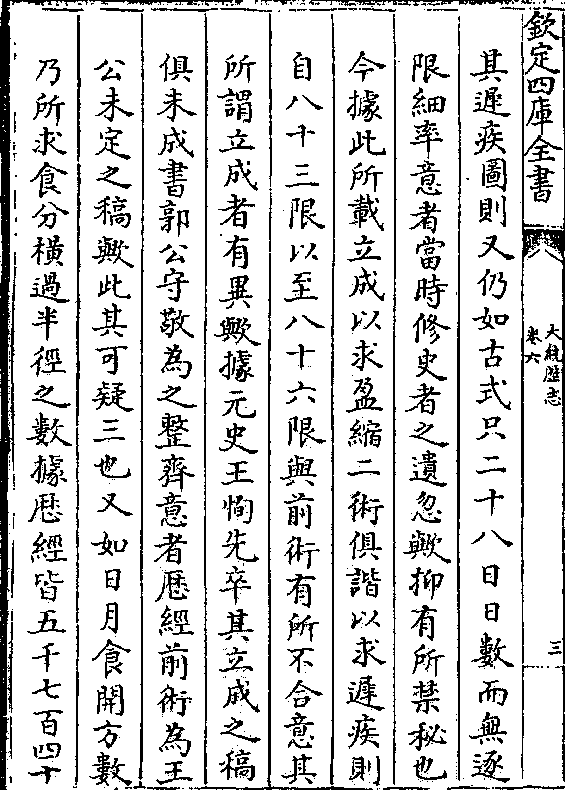 欽定四庫全書
大統歴志
卷六
三
其遲疾圖則又仍如古式只二十八日日數而無逐
限細率意者當時修史者之遺忽歟抑有所禁秘也
今據此所載立成以求盈縮二術俱諧以求遲疾則
自八十三限以至八十六限與前術有所不合意其
所謂立成者有異歟據元史王恂先卒其立成之稿
俱未成書郭公守敬為之整齊意者歴經前術為王
公未定之稿歟此其可疑三也又如日月食開方數
乃所求食分橫過半徑之數據歴經皆五千七百四十